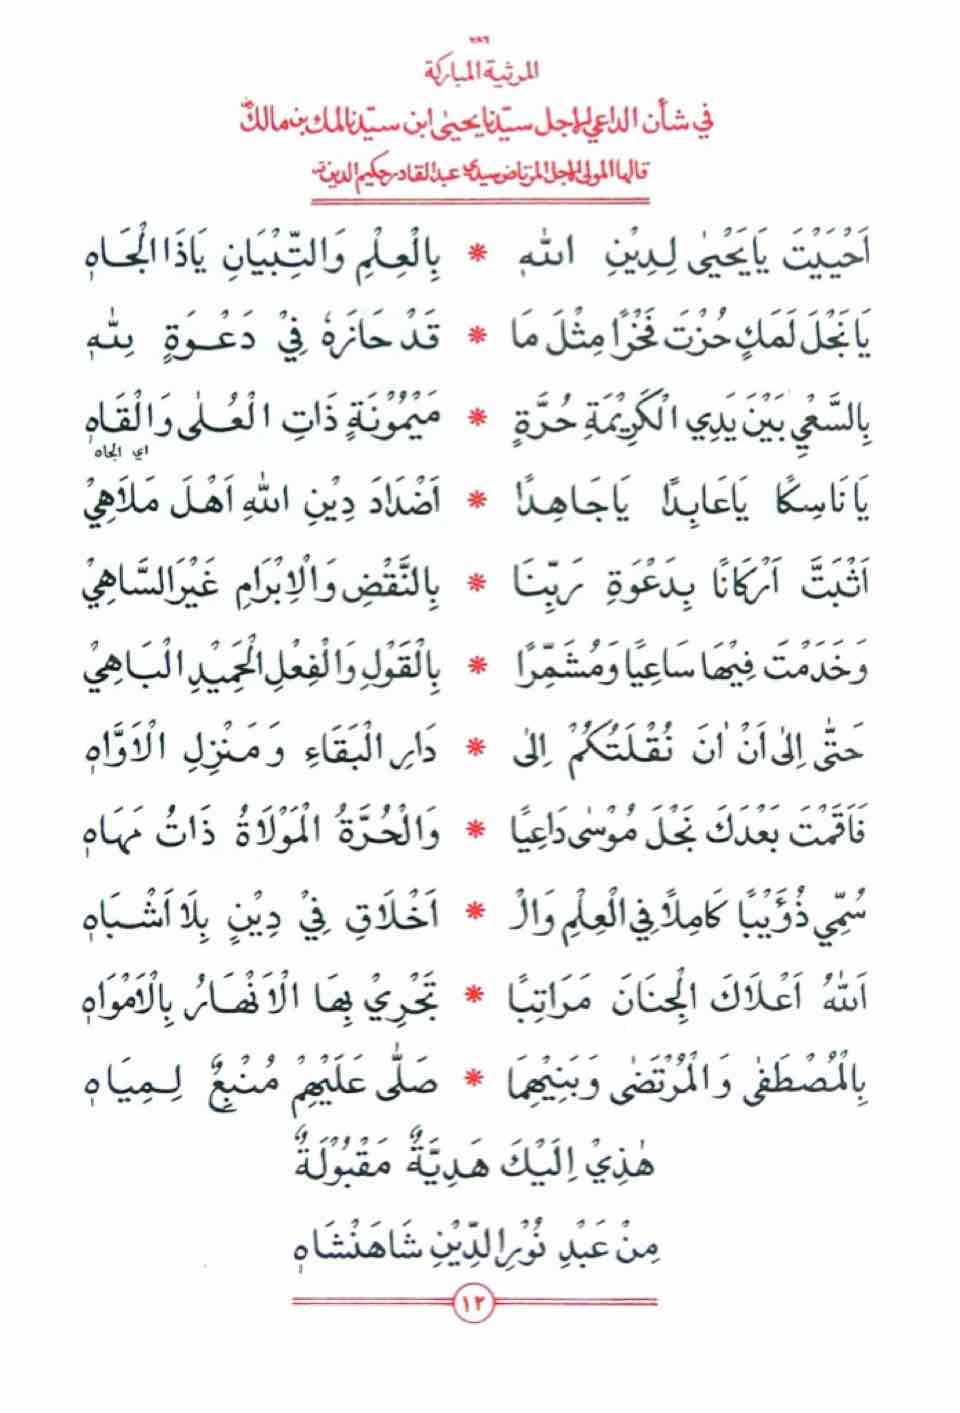 ٧٨٦
المرثية المباركة
في شأن الداعي الاجل سيّدنا يحيىٰ ابن سيّدنا لمك بن مالك
قالها المولى الاجل المرتاض سيدي عبد القادر حكيم الدين
اَحْيَيْتَ يَا يَحْيىٰ لِدِيْنِ اللهِ * بِالْعِلْمِ وَالتِّبْيَانِ يَاذَا الْجَاهِ
يَا نَجْلَ لَمَكٍ حُزْتَ فَخْرًا مِثْلَ مَا * قَدْ حَازَهُ فِيْ دَعْوَةٍ لِلّٰهِ
بِالسَّعْيِ بَيْنَ يَدِي الْكَرِيْمَةِ حُرَّةٍ * مَيْمُوْنَةٍ ذَاتِ الْعُلٰى وَالْقَاهِ
اي الجاه
يَا نَاسِكًا يَا عَابِدًا يَا جَاهِدًا * اَضْدَادَ دِيْنِ اللهِ اَهْلَ مَلَاهِيْ
اَثْبَتَّ اَرْكَانًا بِدَعْوَةِ رَبِّنَا * بِالنَّقْضِ وَالْاِبْرَامِ غَيْرَ السَّاهِيْ
وَخَدَمْتَ فِيْهَا سَاعِيًا وَمُشَمِّرًا * بِالْقَوْلِ وَالْفِعْلِ الْحَمِيْدِ الْبَاهِيْ
حَتّٰى اِلىٰ اَنْ اٰنَ نُقْلَتُكُمْ اِلىٰ * دَارِ الْبَقَاءِ وَمَنْزِلِ الْاَوَّاهِ
فَاَقَمْتَ بَعْدَكَ نَجْلَ مُوْسٰى دَاعِيًا * وَالْحُرَّةُ الْمَوْلَاةُ ذَاتُ مَهَاهِ
سُمِّي ذُؤَيْبًا كَامِلًا فِي الْعِلْمِ وَالْ * اَخْلَاقِ فِيْ دِيْنٍ بِلَا اَشْبَاهِ
اَللهُ اَعْلَاكَ الْجِنَانَ مَرَاتِبًا * تَجْرِيْ بِهَا الْاَنْهَارُ بِالْاَمْوَاهِ
بِالْمُصْطَفٰى وَالْمُرْتَضٰى وَبَنِيْهِمَا * صَلّٰى عَلَيْهِمْ مُنْبِعٌ لِمِيَاهِ
هٰذِيْ اِلَيْكَ هَدِيَّةٌ مَقْبُوْلَةٌ
مِنْ عَبْدِ نُوْرِ الدِّيْنِ شَاهَنْشَاهِ
١٢